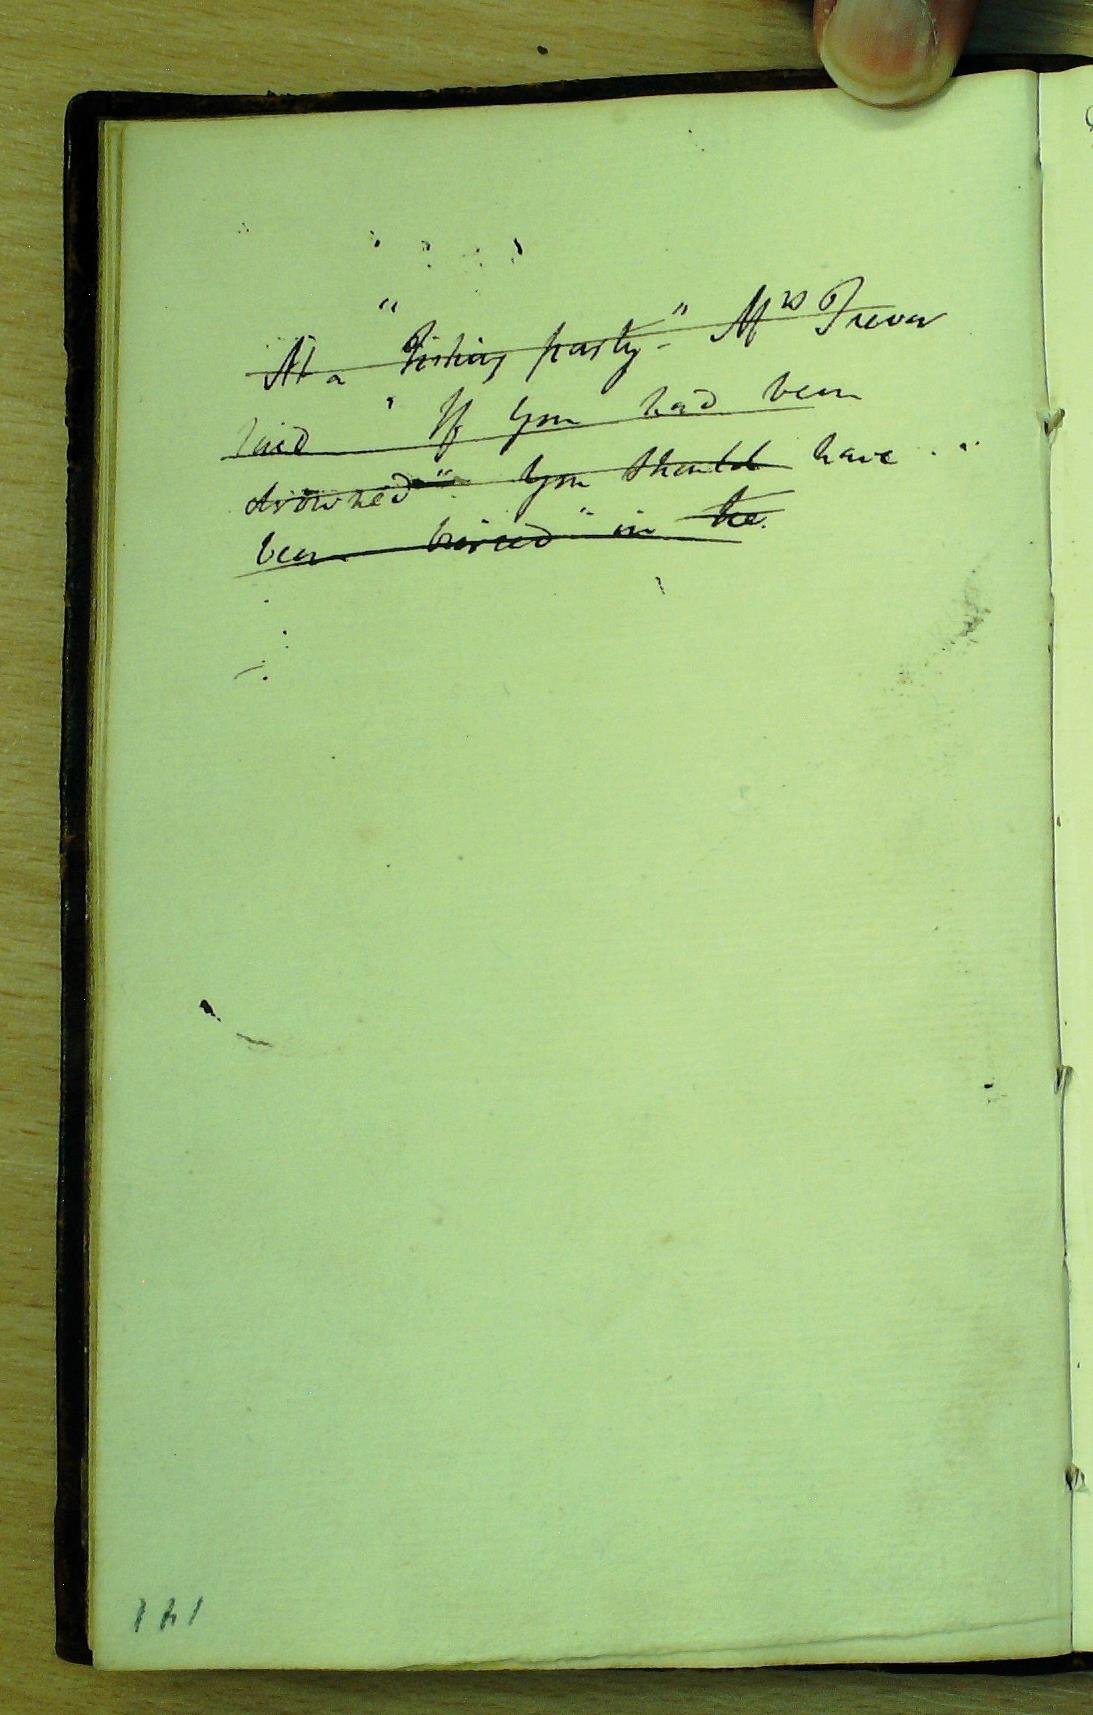 At a "Fishing party" - Mrs Trevor
said "If you had been
drowned" you should have "
been buried" in the
141